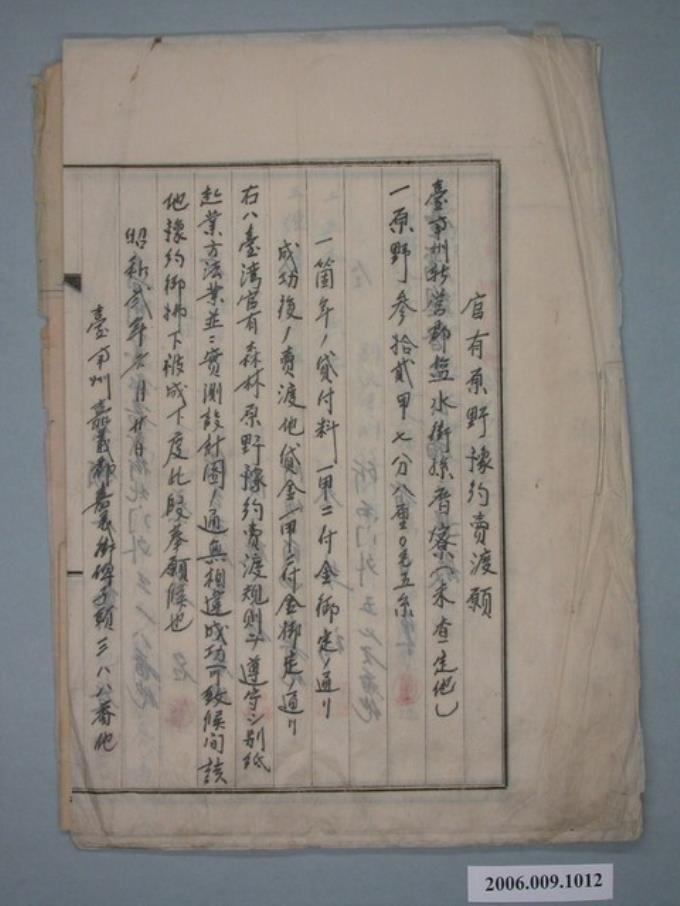 官有原野豫約賣渡願
臺南州新営郡塩水街孫厝寮(未査定地)
一原野 参拾貳甲七分八厘0毛五糸
一箇年ノ貸付料一甲ニ付金御定ノ通リ
成功後ノ賣渡地貸金一甲ニ付金御定ノ通リ
右ハ臺湾官有森林原野豫約賣渡規則ヲ遵守シ別紙
起業方法業並ニ實測設計圖ノ通無相違成功可致候間該
地豫約御拂下被成下度此段奉願候也
昭和参年 月廿日
臺南州嘉義郡嘉義街埤子頭三八八番地
2006.009.1012